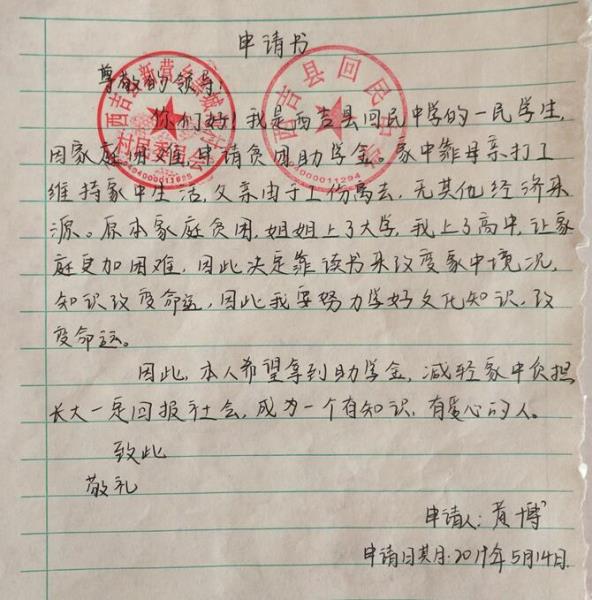 申请书
尊敬的领导:
你们好!我是西吉县回民中学的一民学生,
因家庭困难,申请贫困助学金。家中靠母亲打工
维持家中生活,父亲由于工伤离去,无其他经济来
源。原本家庭贫困,姐姐上了大学,我上了高中,让家
庭更加困难,因此决定靠读书来改变家中境况,
知识改变命运,因此我要努力学好文化知识,改
变命运。
因此,本人希望拿到助学金,减轻家中负担
长大一定回报社会,成为一个有知识,有爱心的人。
致此
敬礼
申请人:黄博
申请日期:2019年5月14日.
西吉县新营乡
村民委员会
西吉县回民中学
6404000011294